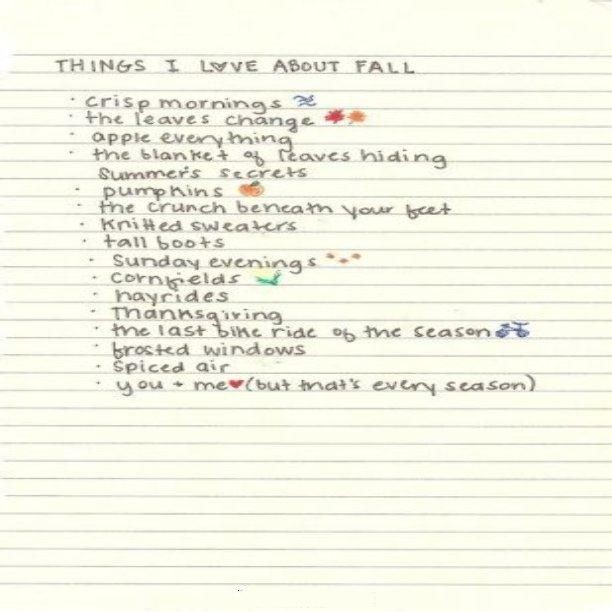 THINGS I LOVE ABOUT FALL
· crisp mornings
· the leaves change
· apple everything
· the blanket of leaves hiding
summer's secrets
· pumpkins
· the crunch beneath your feet
· knitted sweaters
· tall boots
· Sunday evenings
· cornfields
· hayrides
· Thanksgiving
· the last bike ride of the season
· frosted windows
· spiced air
· you + me♥(but that's every season)